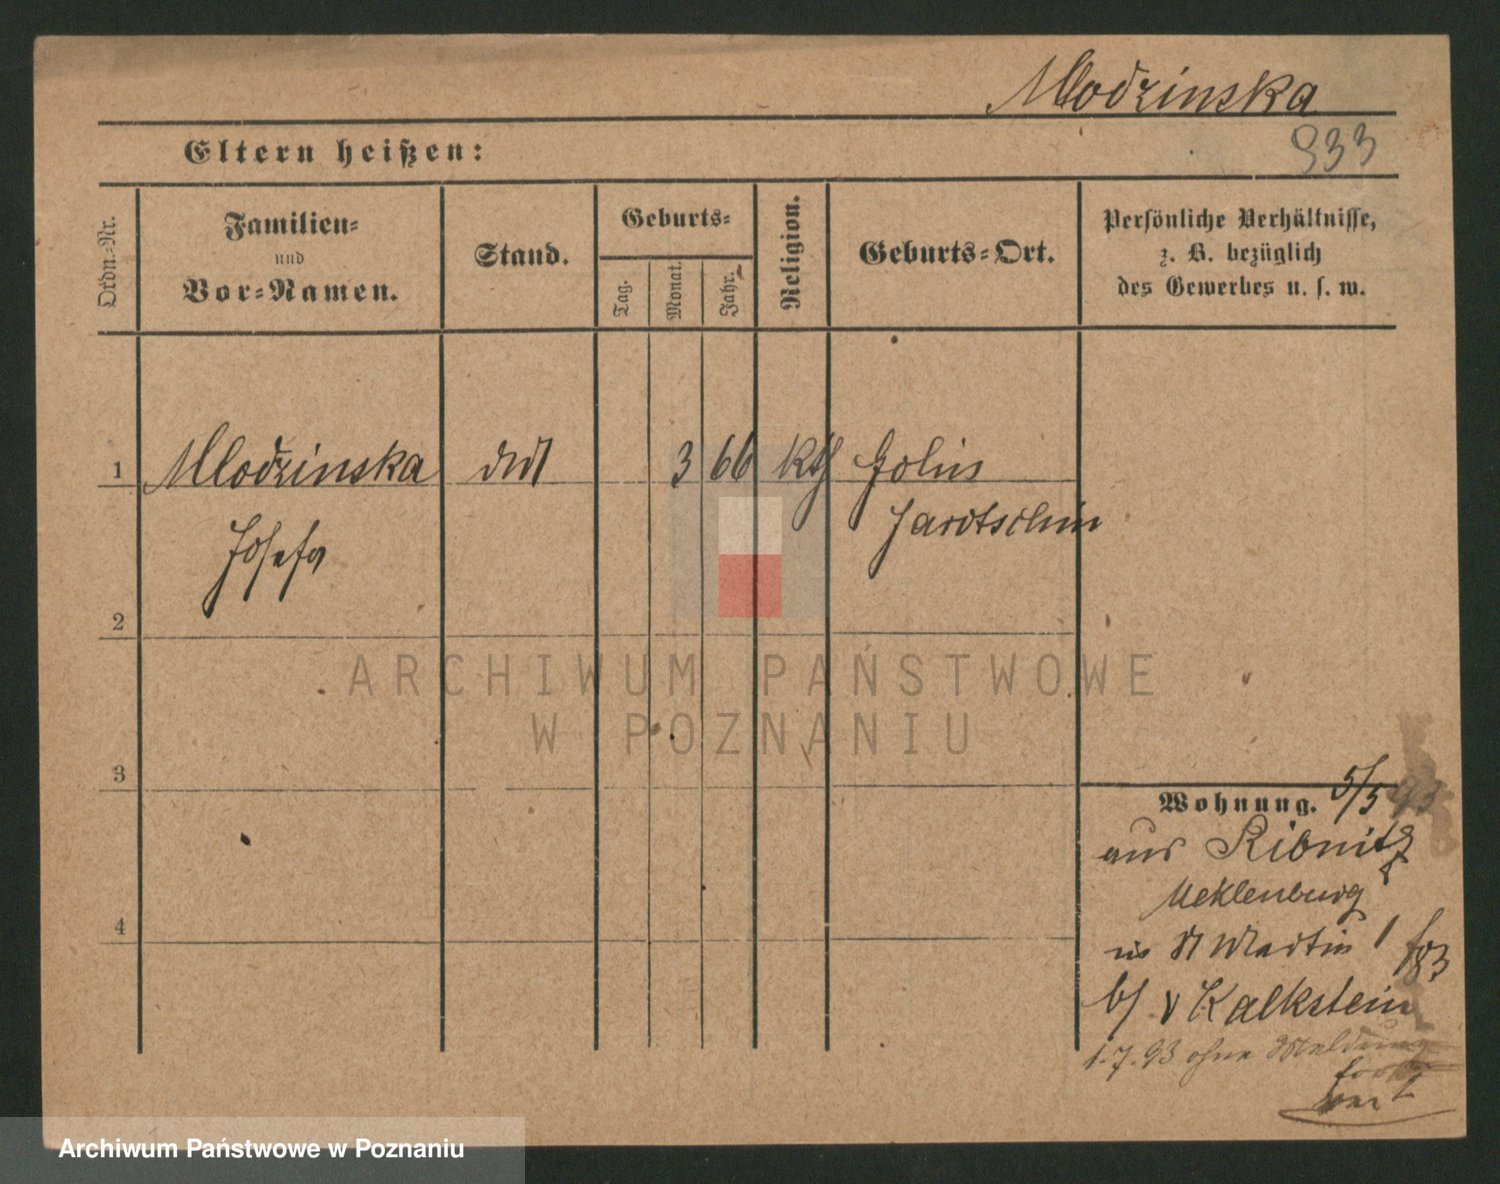 Mlodzinska
Eltern heißen:
933
Ordn.-Nr.
Familien-
und
Vor-Namen.
Stand.
Geburts-
Tag.
Monat.
Jahr.
Religion.
Geburts-Ort.
Persönliche Verhältnisse,
z. B. bezüglich
des Gewerbes u. s. w.
1 Mlodzinska 3 66 kth Golin
Josefa Jarotschin
2
3
4
Wohnung. 5/5 93
aus Ribnitz
Meklenburg
in St Martin 1
b/ v Kalkstein
1.7.93 ohne Meldung
fort
ARCHIWUM PAŃSTWOWE
W POZNANIU
Archiwum Państwowe w Poznaniu